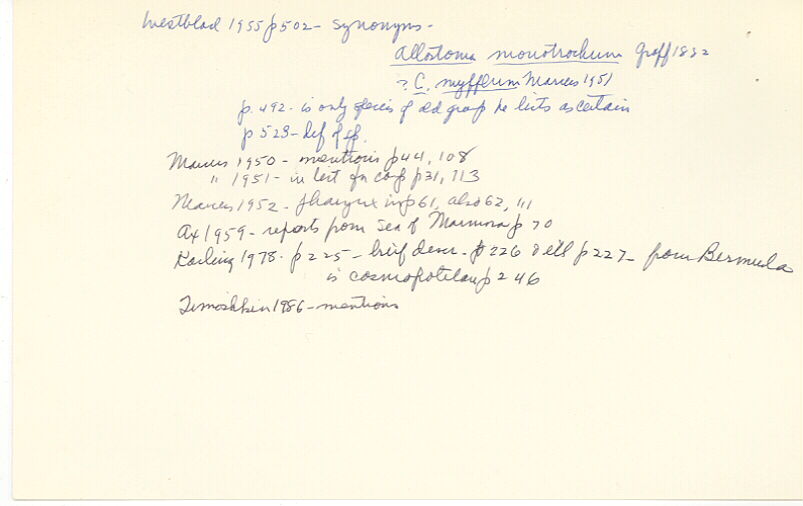 Westblad 1955 p502 - synonyms -
Allostoma monotrochum Graff 1882
? C. mytilum Marcus 1951
p. 492 - is only species of old group he lists as certain
p 523 - def of sp.
Marcus 1950 - mentions p44, 108
" 1951 - in list fn comp p31, 113
Marcus 1952 - pharynx in p61, also 62, 111
Ax 1959 - reports from Sea of Marmora p 70
Karling 1978 - p225 - brief descr. - p226 & ill p227 - from Bermuda
is cosmopolitan p 246
Timoshkin 1986 - mentions